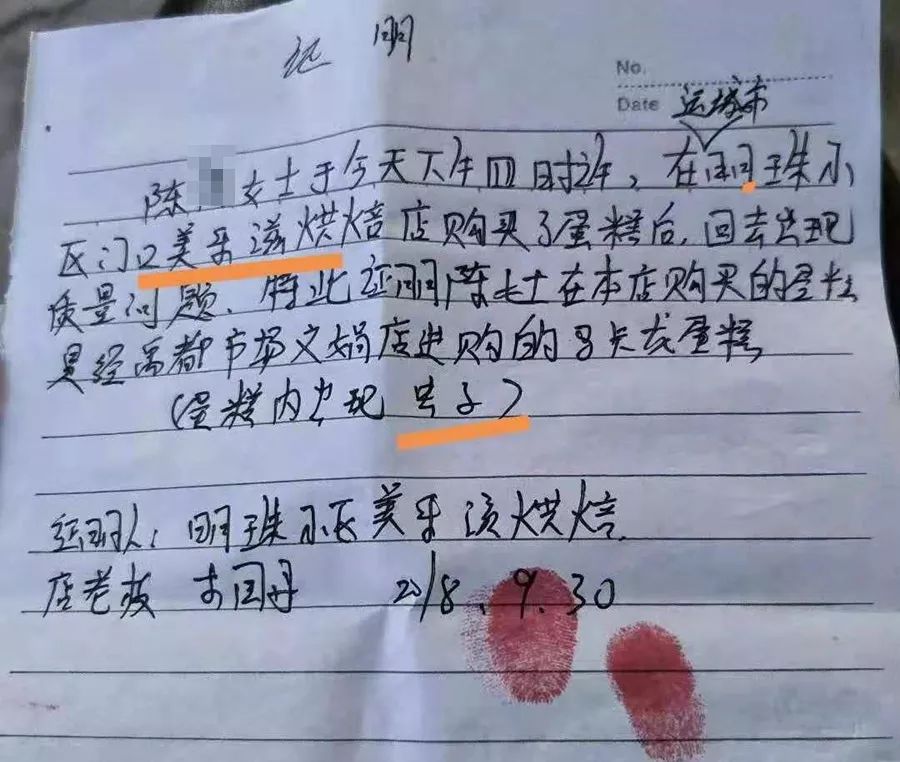 证 明
No.
Date 运城市
陈 女士于今天下午四时许，在明珠小
区门口美乐滋烘焙店购买了蛋糕后，回去出现
质量问题．特此证明陈女士在本店购买的蛋糕
是经禹都市场文娟店进购的 卡龙蛋糕
（蛋糕内出现虫子）
证明人：明珠小区美乐滋烘焙
店老板 国丹 2018．9．30